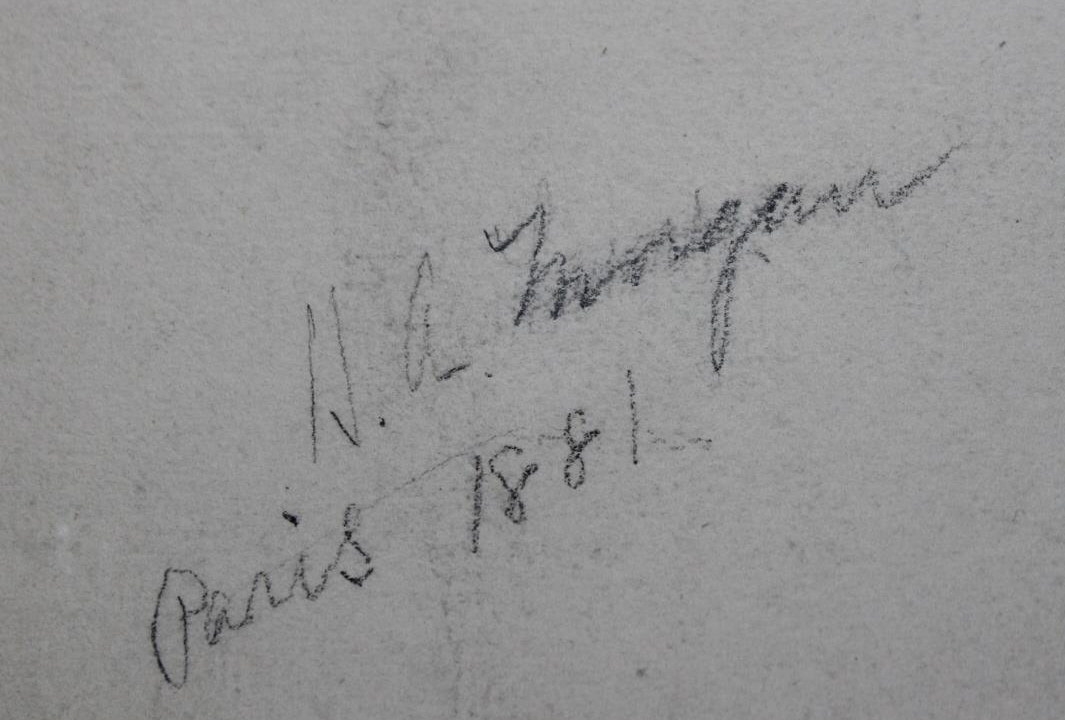 H. A. Morgan
Paris 1881